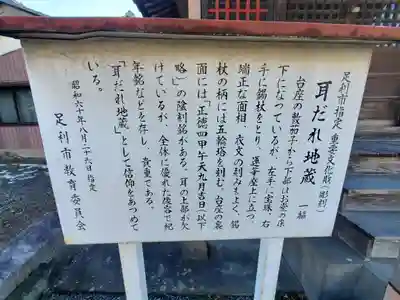 足利市指定 重要文化財(彫刻)
耳だれ地蔵 一軀
台座の敷茄子から下部はお堂の床
下になっているが、左手に宝珠、右
手に錫杖をとり、蓮華座上に立つ。
端正な面相、衣文の刻みもよく、錫
杖の柄には五輪塔を刻む。台座の裏
面には「正徳四甲午天九月吉日(以下
略)」の陰刻銘がある。耳の上部が欠
けているが、全体に優れた後谷で紀
年銘などを存し、貴重である。
「耳だれ地蔵」として信仰をあつめて
いる。
昭和六十年八月二十六日指定
足利市教育委員会